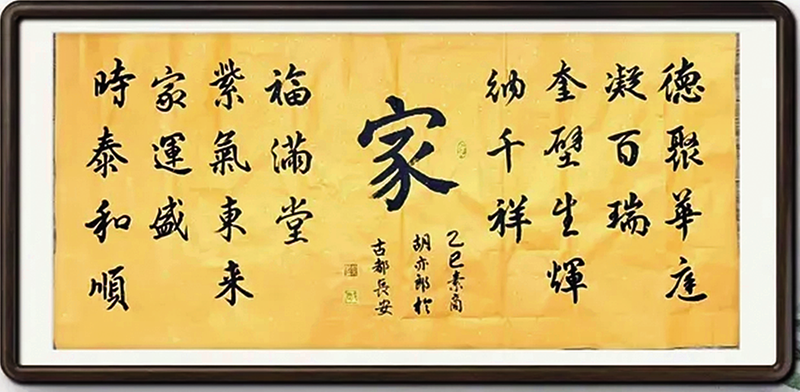 德聚華庭
凝百瑞
奎壁生輝
納千祥
家
乙巳素商
胡亦郎於
古都長安
福滿堂
紫氣東来
家運盛
時泰和順